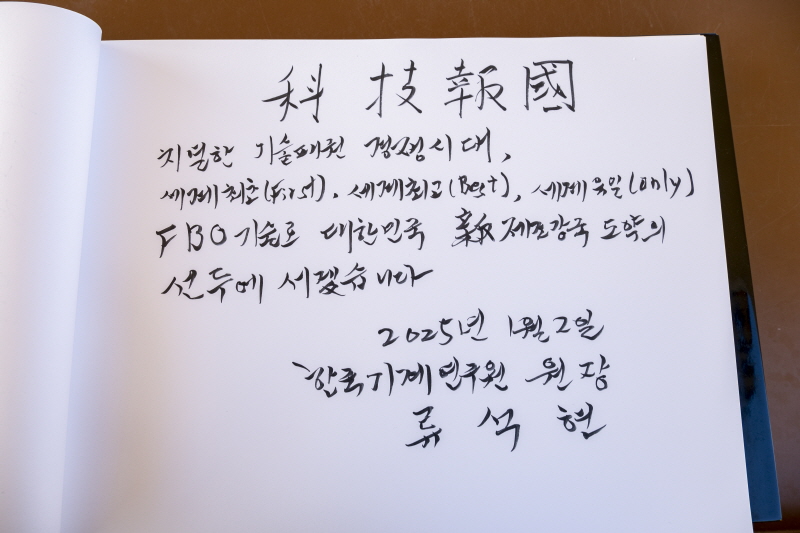 科技報國
치열한 기술패권 경쟁시대,
세계최초(First), 세계최고(Best), 세계유일(only)
FBO기술로 대한민국 新제조강국 도약의
선두에 서겠습니다
2025년 1월 2일
한국기계연구원 원장
류석현